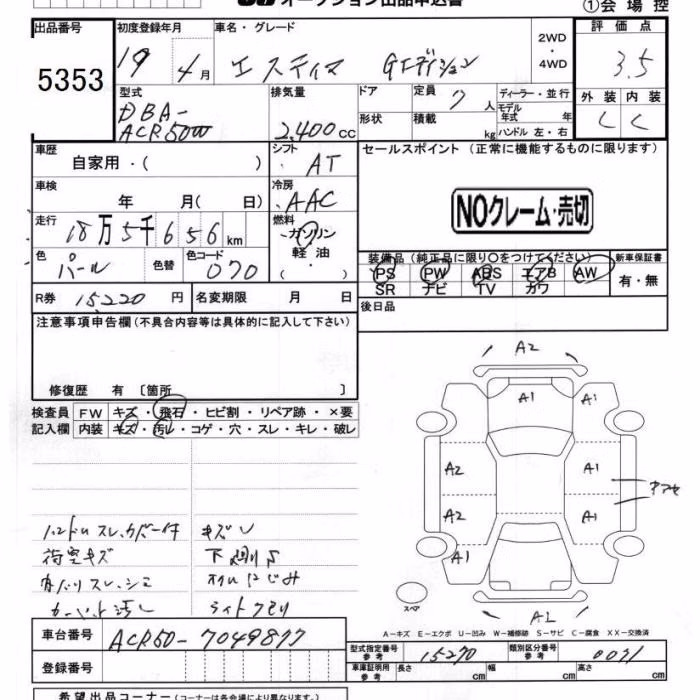 オークション出品申込書
①会場控
出品番号
5353
初度登録年月
19 4月
車名・グレード
エスティマ Gエディション
2WD
・
4WD
評価点
3.5
型式
DBA-
ACR50W
排気量
2,400cc
ドア
形状
定員 7人
積載 kg
ディーラー・並行
モデル
年式 年
ハンドル 左・右
外装 内装
C C
車歴
自家用・( )
シフト
AT
セールスポイント(正常に機能するものに限ります)
車検
年 月( 日)
冷房
AAC
NOクレーム・売切
走行
18万5千656km
燃料
ガソリン
軽油
・( )
色
パール
色替
色コード
070
装備品(純正品に限り○をつけてください)
PS PW ABS エアB AW
SR ナビ TV カワ
新車保証書
有・無
R券 15,220円
名変期限 月 日
後日品
注意事項申告欄(不具合内容等は具体的に記入して下さい)
修復歴 有〔箇所 〕
検査員
記入欄
FW キズ・飛石・ヒビ割・リペア跡・×要
内装 キズ・汚レ・コゲ・穴・スレ・キレ・破レ
A2
A1 A1
A2 A1
A2 A1
A1
A2
スペア
ハンドルスレ,カバー付 キズU
荷室キズ 下廻りS
内バリスレ,シミ オイルにじみ
カーペット汚レ ライトクモリ
A-キズ E-エクボ U-凹み W-補修跡 S-サビ C-腐食 XX-交換済
車台番号 ACR50-7049877
登録番号
型式指定番号
参考
15270
類別区分番号
参考
0071
車庫証明用
参考
長さ cm 幅 cm 高さ cm
希望出品コーナー(コーナーは各会場により異なります。)